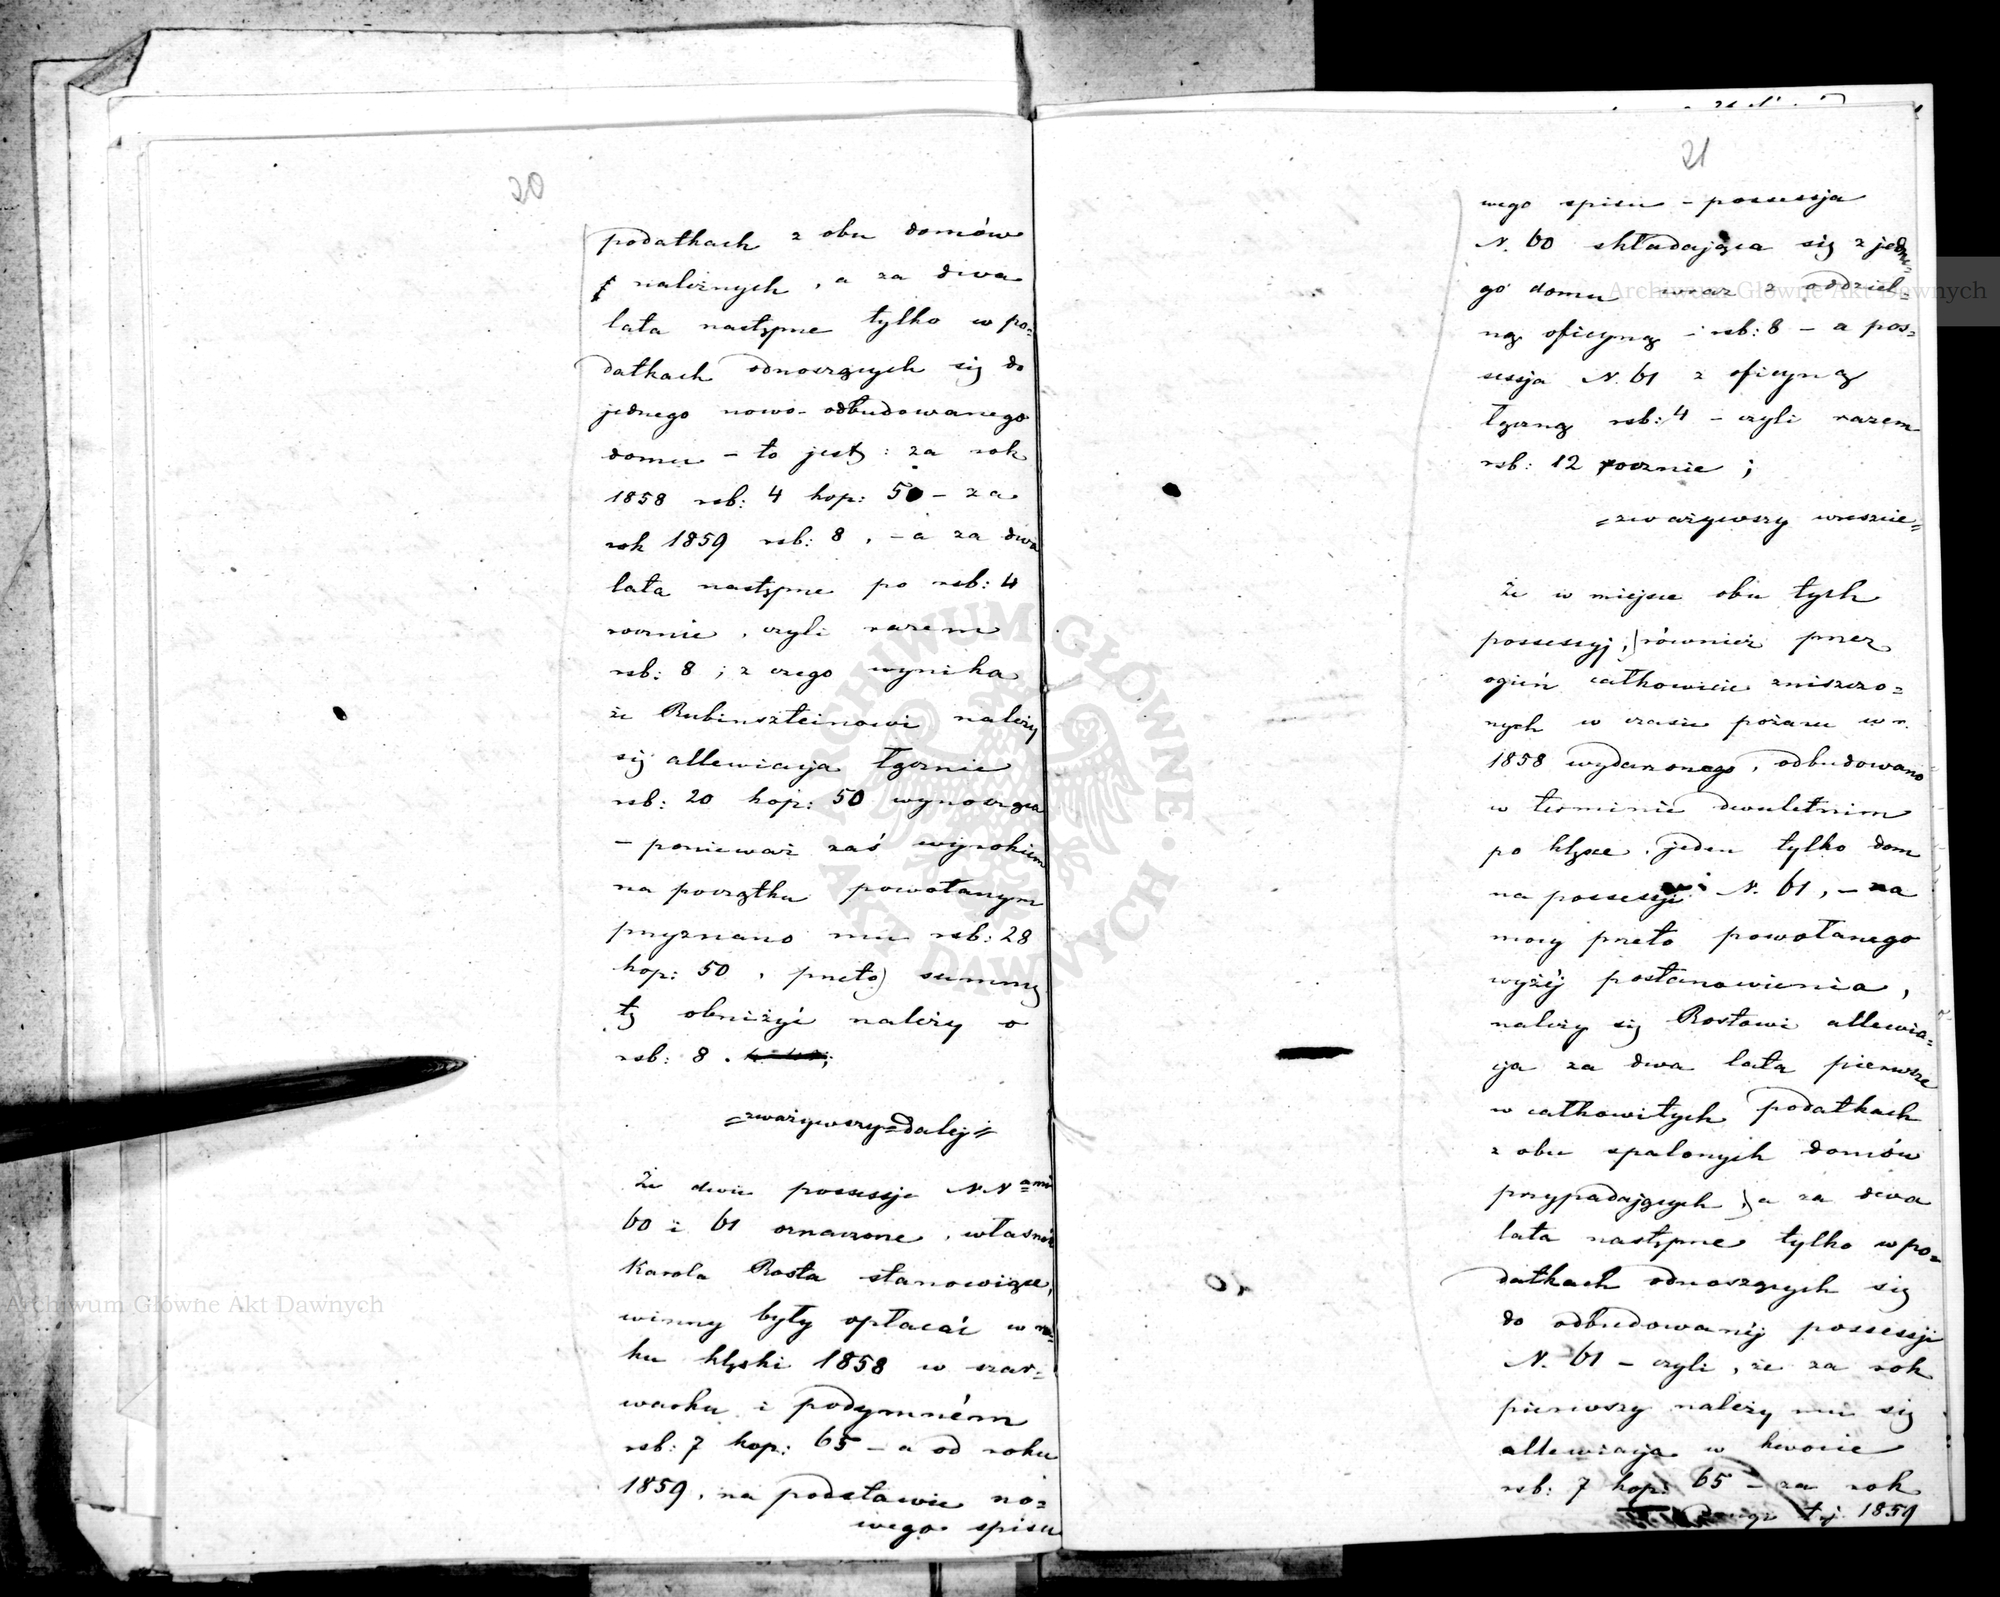 20
podatkach z obu domów
należnych, a za dwa
lata następne tylko w po=
datkach odnoszących się do
jednego nowo-odbudowanego
domu – to jest: za rok
1858 rsb: 4 kop: 50 – za
rok 1859 rsb: 8, – a za dwa
lata następne po rsb: 4
rocznie, czyli razem
rsb: 8; z czego wynika
że Rubinszteinowi należy
się allewiacyja łącznie
rsb: 20 kop: 50 wynosząca
– ponieważ zaś wyrokiem
na początku powołanym
przyznano mu rsb: 28
kop: 50, przeto summę
tę obniżyć należy o
rsb: 8.
=zważywszy=dalej=
Że dwie possessje NNami
60 i 61 oznaczone, własność
Karola Rosta stanowiące,
winny były opłacać w ro=
ku klęski 1858 w szar=
warku i podymném
rsb: 7 kop: 65 – a od roku
1859, na podstawie no=
wego spisu
21
wego spisu – possessja
N. 60 składająca się z jedne=
go domu wraz z oddziel=
ną oficyną – rsb: 8 – a pos=
sessja N. 61 z oficyną
łączną rsb: 4 – czyli razem
rsb: 12 rocznie;
=zważywszy wreszcie=
Że w miejsce obu tych
possessyj, również przez
ogień całkowicie zniszczo=
nych w czasie pożaru w r.
1858 wydarzonego, odbudowano
w terminie dwuletnim
po klęsce, jeden tylko dom
na possessji N. 61, – na
mocy przeto powołanego
wyżéj postanowienia,
należy się Rostowi allewia=
cja za dwa lata pierwsze
w całkowitych podatkach
z obu spalonych domów
przypadających, a za dwa
lata następne tylko w po=
datkach odnoszących się
do odbudowanéj possessji
N. 61 – czyli, że za rok
pierwszy należy mu się
allewiacyja w kwocie
rsb: 7 kop: 65 – za rok
drugi t.j. 1859
Archiwum Główne Akt Dawnych
Archiwum Główne Akt Dawnych
ARCHIWUM GŁÓWNE AKT DAWNYCH